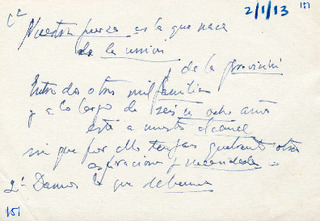 2/1/13 151
Nuestra fuerza es la que nace
de la union
de la provincia
Entre dos otros mil familias
y a lo largo de seis u ocho años
está a nuestro alcance
sin que por ello tengan otra
2º Damos lo que debemos
151